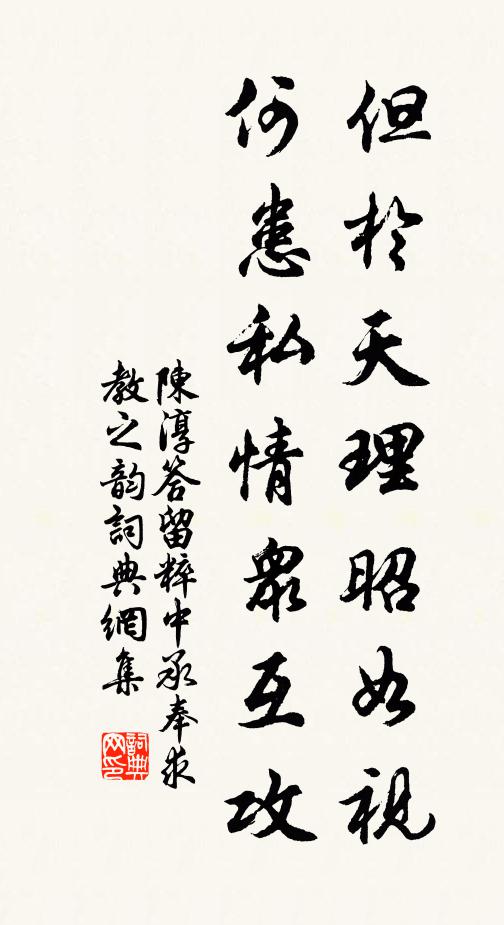 但於天理昭如視
何患私情衆互攻
陳淳答留粹中承奉求
教之韵詞典網集
詞典
网印